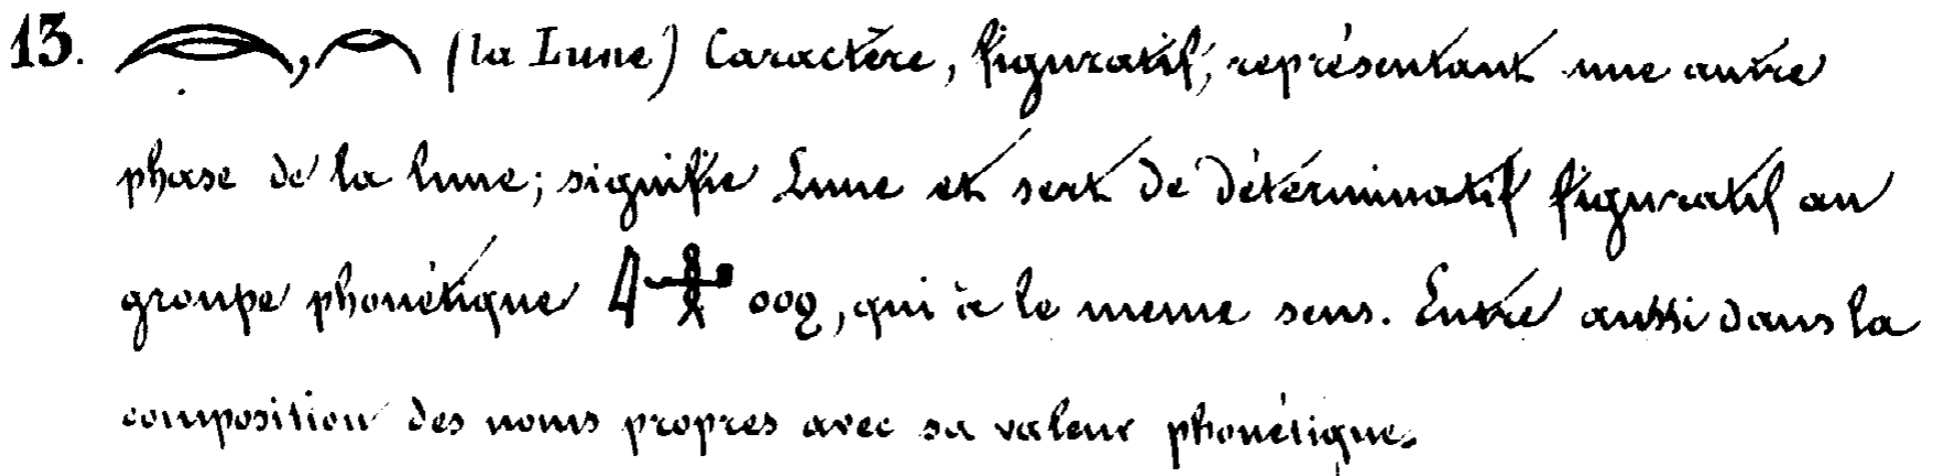 13. 𓇹, 𓇹 (la Lune) Caractère, figuratif, représentant une autre
phase de la lune; signifie Lune et sert de déterminatif figuratif au
groupe phonétique ooϩ, qui a le meme sens. Entre aussi dans la
composition des noms propres avec sa valeur phonétique.